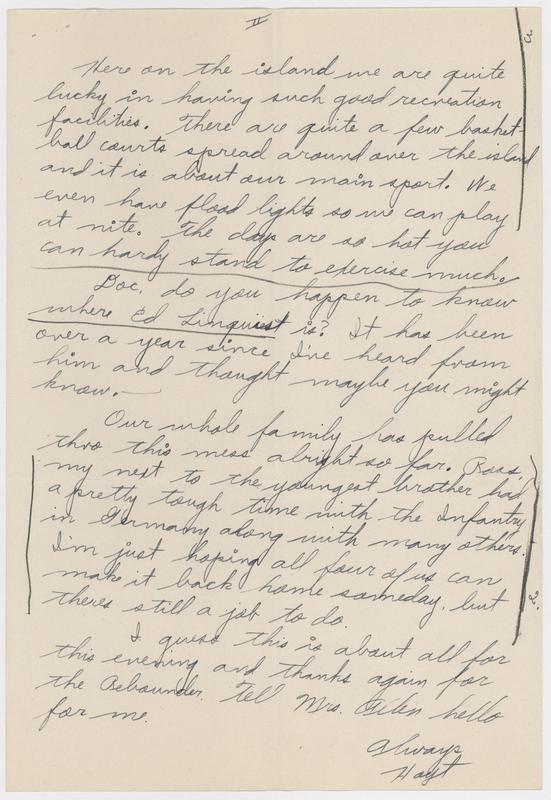 II
a
Here on the island we are quite
lucky in having such good recreation
facilities. There are quite a few basket-
ball courts spread around over the island
and it is about our main sport. We
even have flood lights so we can play
at nite. The days are so hot you
can hardy stand to exercise much.
Doc, do you happen to know
where Ed Linquiest is? It has been
over a year since I've heard from
him and thought maybe you might
know.
Our whole family has pulled
thro this mess alright so far. Ross,
my next to the youngest brother had
a pretty tough time with the Infantry
in Germany along with many others.
I'm just hoping all four of us can
make it back home someday, but
theres still a job to do.
2.
I guess this is about all for
this evening and thanks again for
the Rebounder. Tell Mrs. Allen hello
for me.
Always
Hoyt